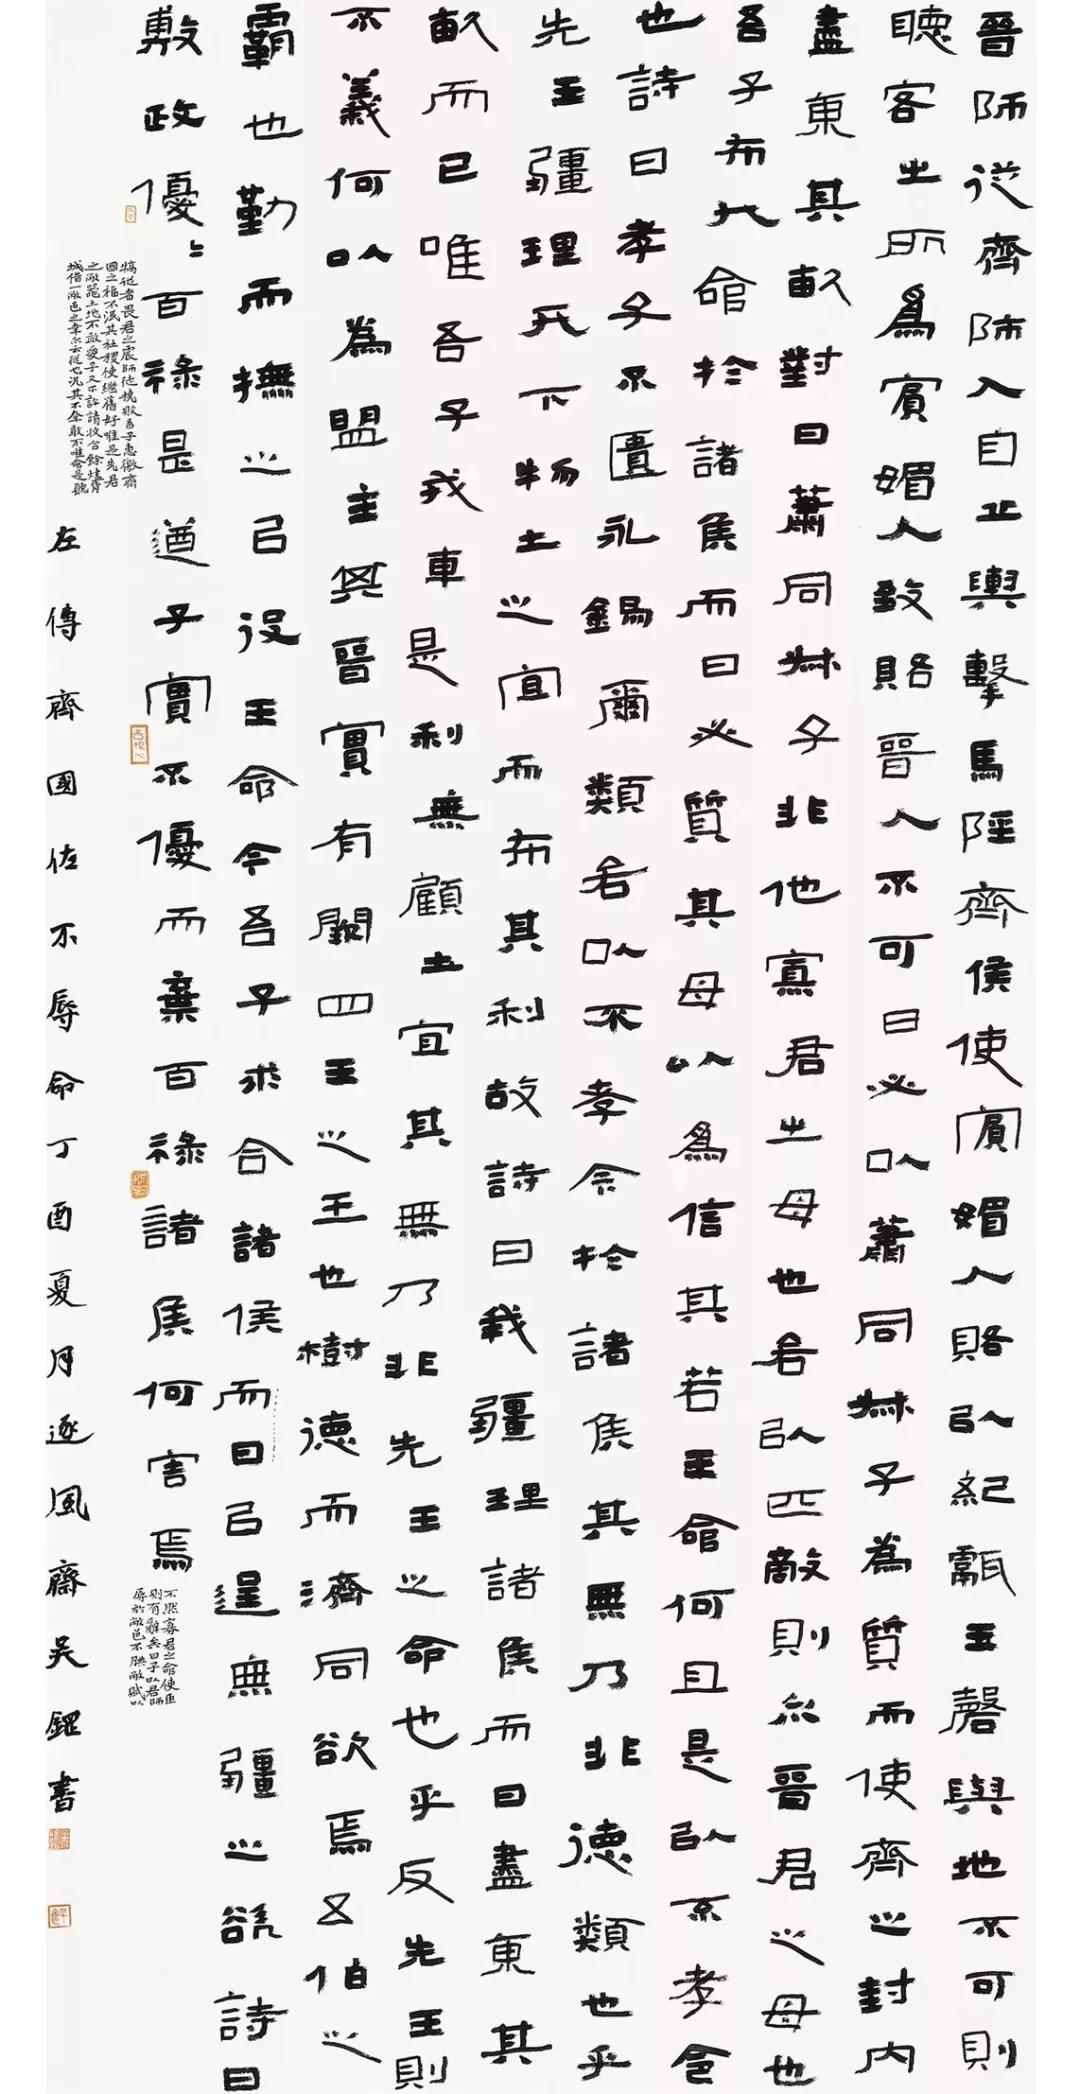 晉師從齊師入自丘輿擊馬陘齊侯使賓媚人賂以紀甗玉磬與地不可則
聽客之所為賓媚人致賂晉人不可曰必以蕭同叔子為質而使齊之封內
盡東其畝對曰蕭同叔子非他寡君之母也若以匹敵則亦晉君之母也
吾子布大命於諸侯而曰必質其母以為信其若王命何且是以不孝令
也詩曰孝子不匱永錫爾類若以不孝令於諸侯其無乃非德類也乎
先王疆理天下物土之宜而布其利故詩曰我疆理諸侯而曰盡東其
畝而已唯吾子戎車是利無顧土宜其無乃非先王之命也乎反先王則
不義何以為盟主其晉實有闕四王之王也樹德而濟同欲焉五伯之
霸也勤而撫之以役王命今吾子求合諸侯而曰以逞無疆之欲詩曰
敷政優〻百祿是遒子實不優而棄百祿諸侯何害焉
不然寡君之命使臣
則有辭矣曰子以君師
辱於敝邑不腆敝賦以
犒從者畏君之震師徒撓敗吾子惠徼齊
國之福不泯其社稷使繼舊好唯是先君
之敝器土地不敢愛子又不許請收合餘燼背
城借一敝邑之幸亦云從也況其不幸敢不唯命是聽
左傳齊國佐不辱命丁酉夏月逐風齋吳書